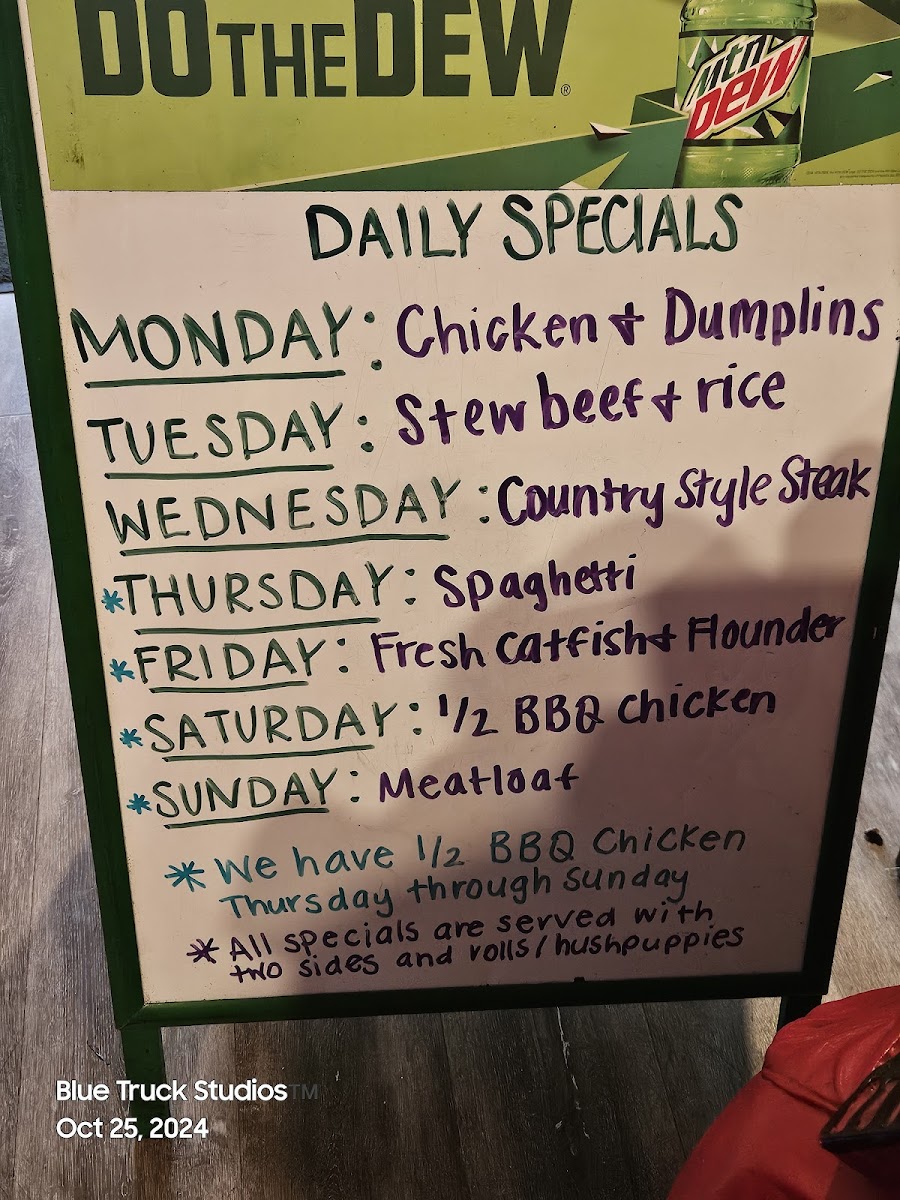 DO THE DEW®
Mtn
DEW
DAILY SPECIALS
MONDAY: Chicken & Dumplins
TUESDAY: Stew beef & rice
WEDNESDAY: Country Style Steak
*THURSDAY: Spaghetti
*FRIDAY: Fresh Catfish & Flounder
*SATURDAY: 1/2 BBQ Chicken
*SUNDAY: Meatloaf
* We have 1/2 BBQ Chicken
Thursday through Sunday
* All specials are served with
two sides and rolls/hushpuppies
Blue Truck Studios™
Oct 25, 2024